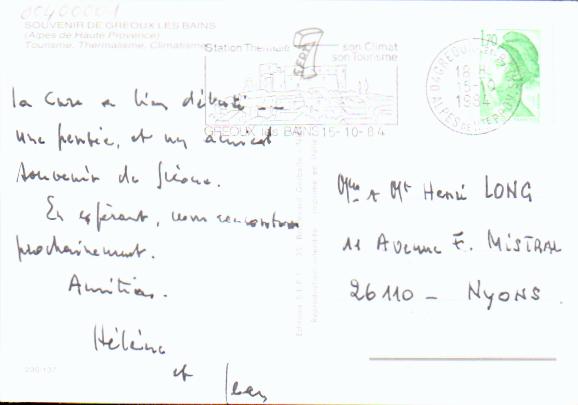 00400001
SOUVENIR DE GREOUX LES BAINS
(Alpes de Haute Provence)
Tourisme, Thermalisme, Climatisme
Station Thermale
son Climat
son Tourisme
GREOUX les BAINS 15-10-84
18 H
15-10
1984
1,70
La cure a bien débuté --
une pensée, et un amical
souvenir de Gréoux.
En espérant, vous rencontrer
prochainement.
Amitiés.
Hélène
et Jean
Mme & Mr Henri LONG
11 Avenue F. MISTRAL
26110 - NYONS
230/137